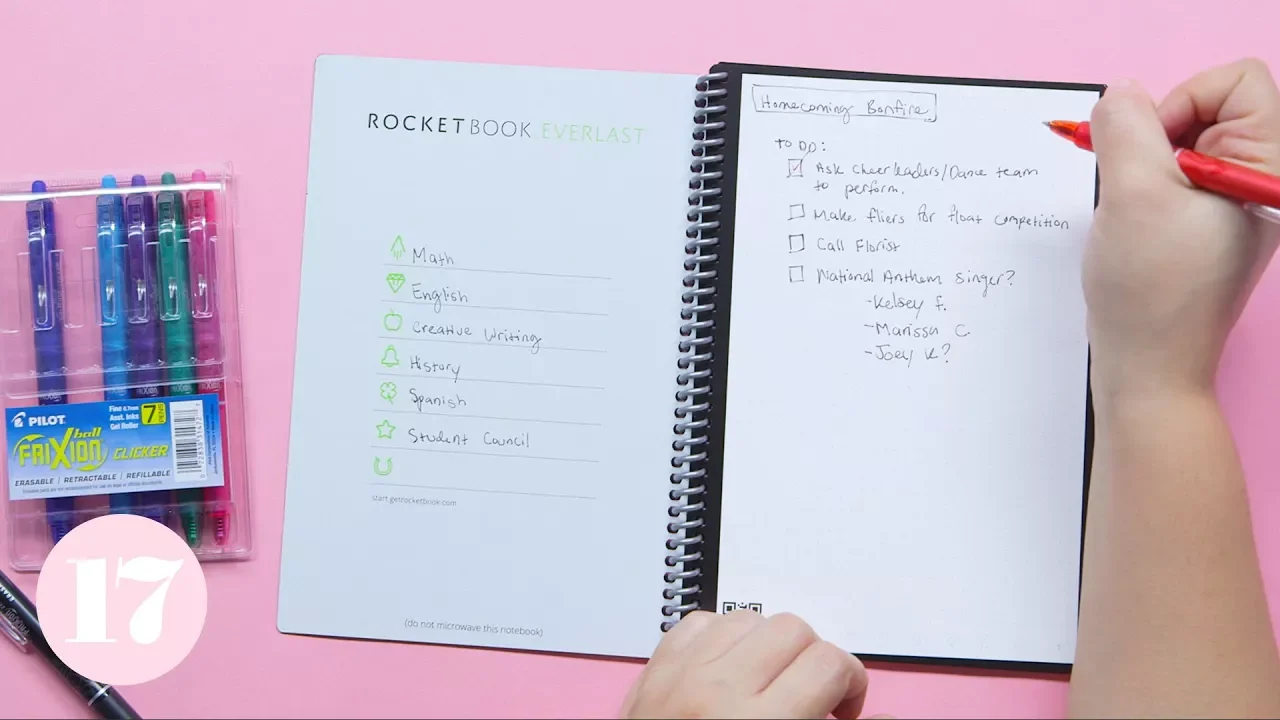 ROCKETBOOK EVERLAST
Math
English
Creative Writing
History
Spanish
Student Council
start.getrocketbook.com
(do not microwave this notebook)
Homecoming Bonfire
TO DO:
Ask Cheerleaders/Dance team
to perform.
Make fliers for float competition
Call Florist
National Anthem singer?
-Kelsey F.
-Marissa C.
-Joey K?
PILOT
Fine 0.7mm
Asst. Inks
Gel Roller
7 PENS
FRIXION ball
CLICKER
ERASABLE | RETRACTABLE | REFILLABLE
17